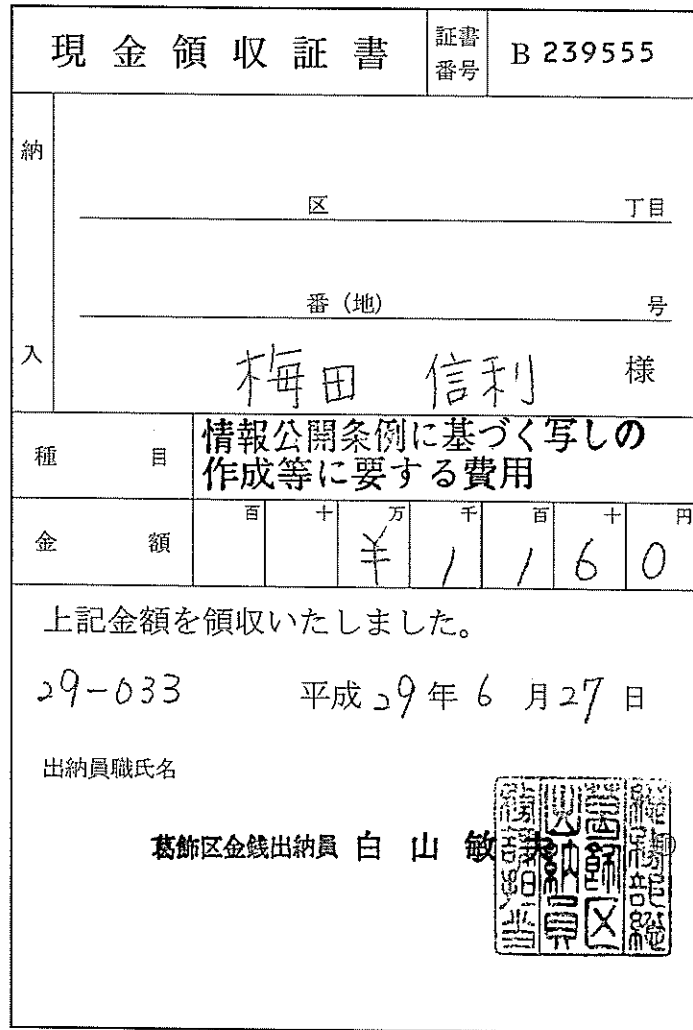 現金領収証書 証書番号 B 239555
納入
区 丁目
番(地) 号
梅田 信利 様
種目 情報公開条例に基づく写しの
作成等に要する費用
金額 百 十 万 千 百 十 円
¥1160
上記金額を領収いたしました。
29-033 平成29年6月27日
出納員職氏名
葛飾区金銭出納員 白山敏夫 印
総務部総
葛飾区
出納員